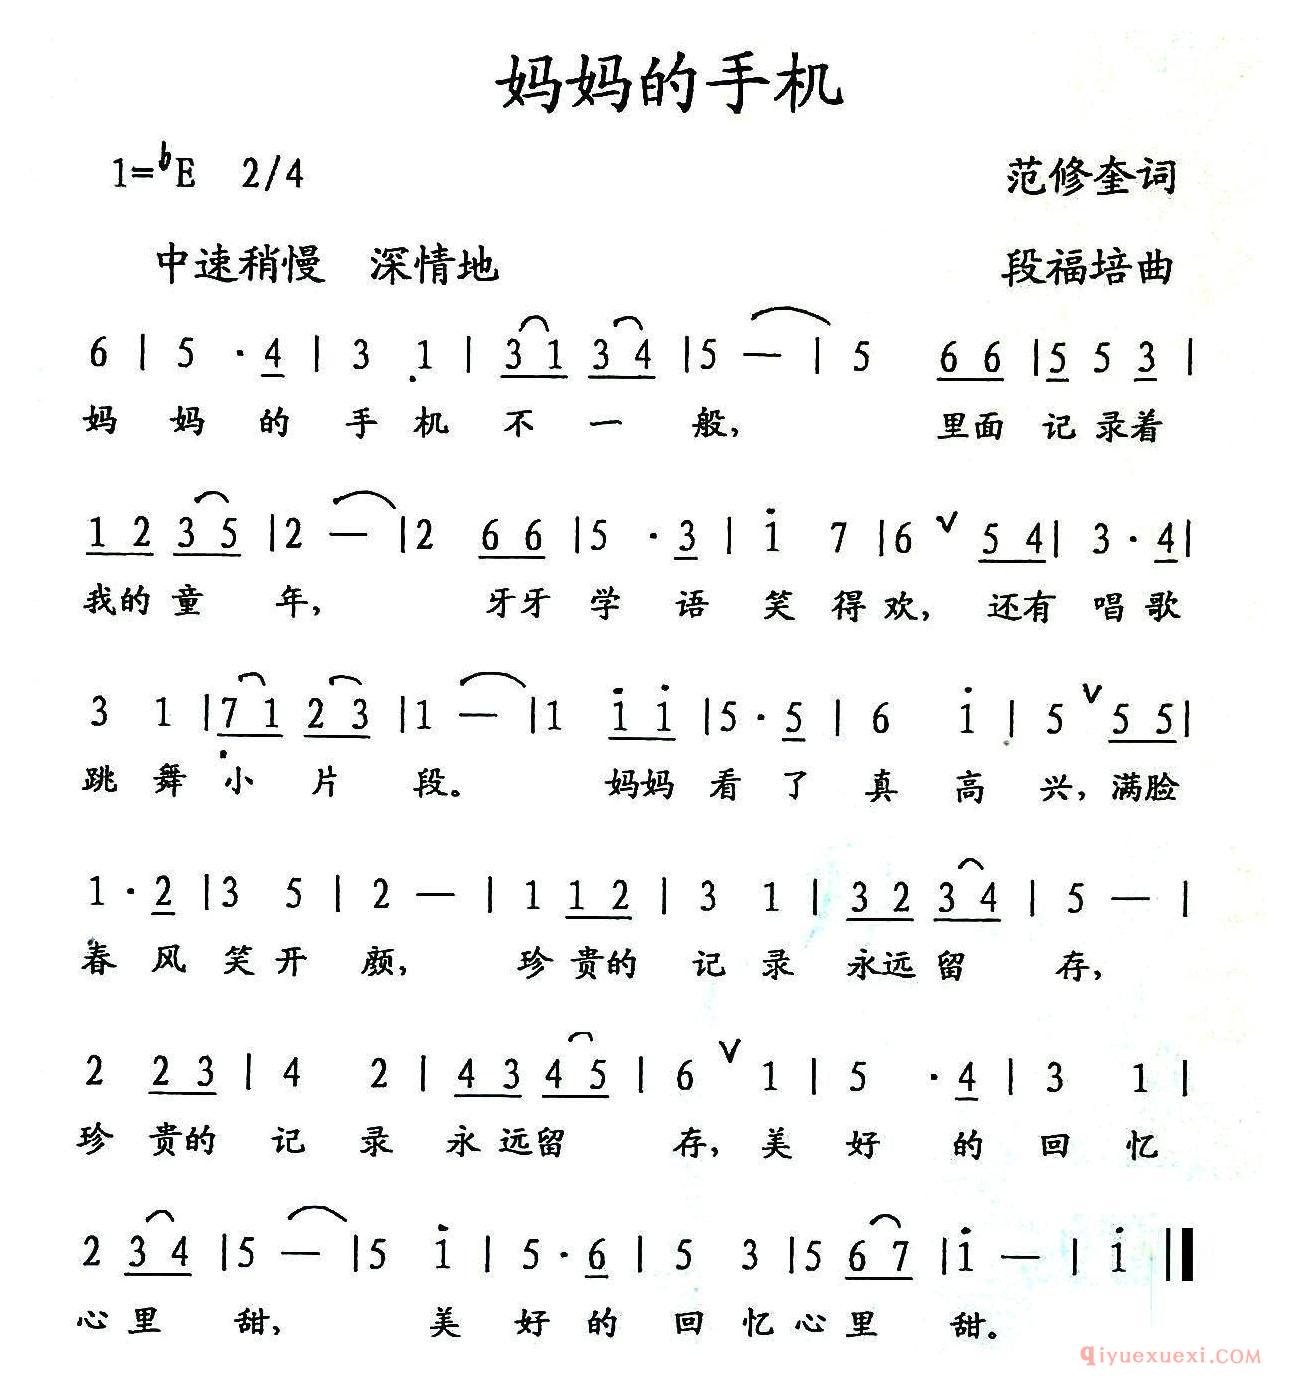 妈妈的手机
1=bE 2/4 范修奎词
中速稍慢 深情地 段福培曲
6 | 5 · 4 | 3 1 | 3 1 3 4 | 5 — | 5 6 6 | 5 5 3 |
妈 妈 的 手 机 不 一 般, 里面 记 录着
1 2 3 5 | 2 — | 2 6 6 | 5 · 3 | i 7 | 6 V 5 4 | 3 · 4 |
我的 童 年, 牙牙 学 语 笑 得 欢, 还有 唱 歌
3 1 | 7 1 2 3 | 1 — | 1 i i | 5 · 5 | 6 i | 5 V 5 5 |
跳 舞 小 片 段。 妈妈 看 了 真 高 兴, 满脸
1 · 2 | 3 5 | 2 — | 1 1 2 | 3 1 | 3 2 3 4 | 5 — |
春 风 笑 开 颜, 珍 贵的 记 录 永远 留 存,
2 2 3 | 4 2 | 4 3 4 5 | 6 V 1 | 5 · 4 | 3 1 |
珍 贵的 记 录 永 远留 存, 美 好 的 回 忆
2 3 4 | 5 — | 5 i | 5 · 6 | 5 3 | 5 6 7 | i — | i ‖
心 里 甜, 美 好 的 回 忆 心 里 甜。
qiyuexuexi.COM